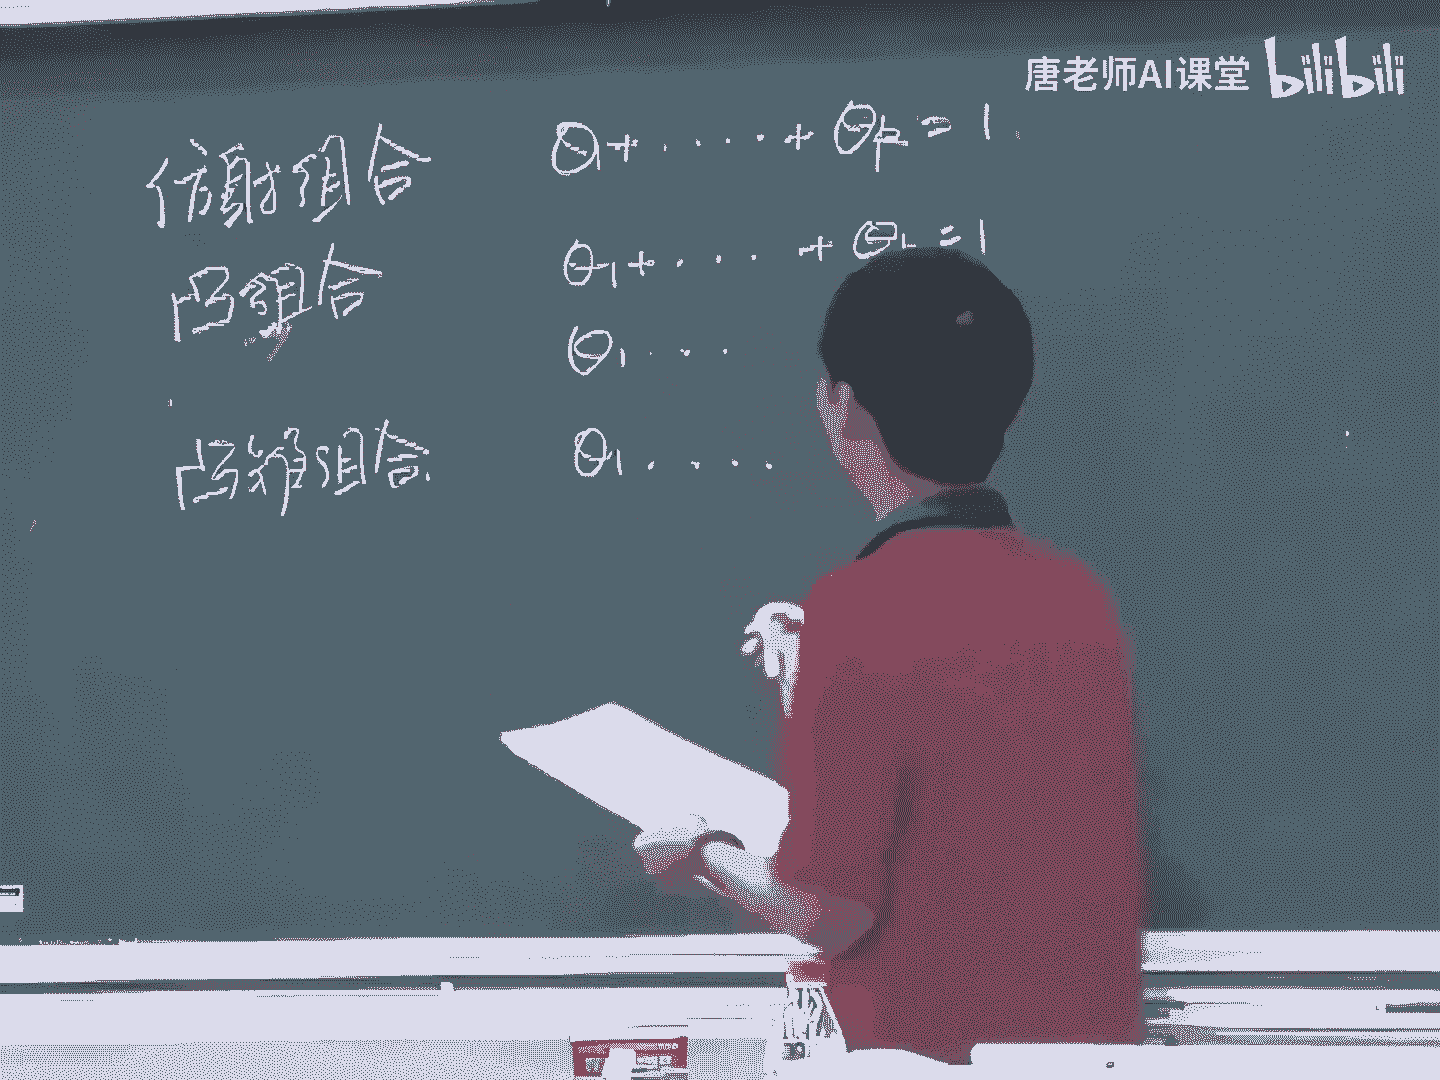 唐老师AI课堂 bilibili
仿射组合 θ₁+ · · · · + θₖ = 1
凸组合 θ₁+ · · · + θₖ = 1
θ₁ · · ·
凸锥组合 θ₁ · · · ·